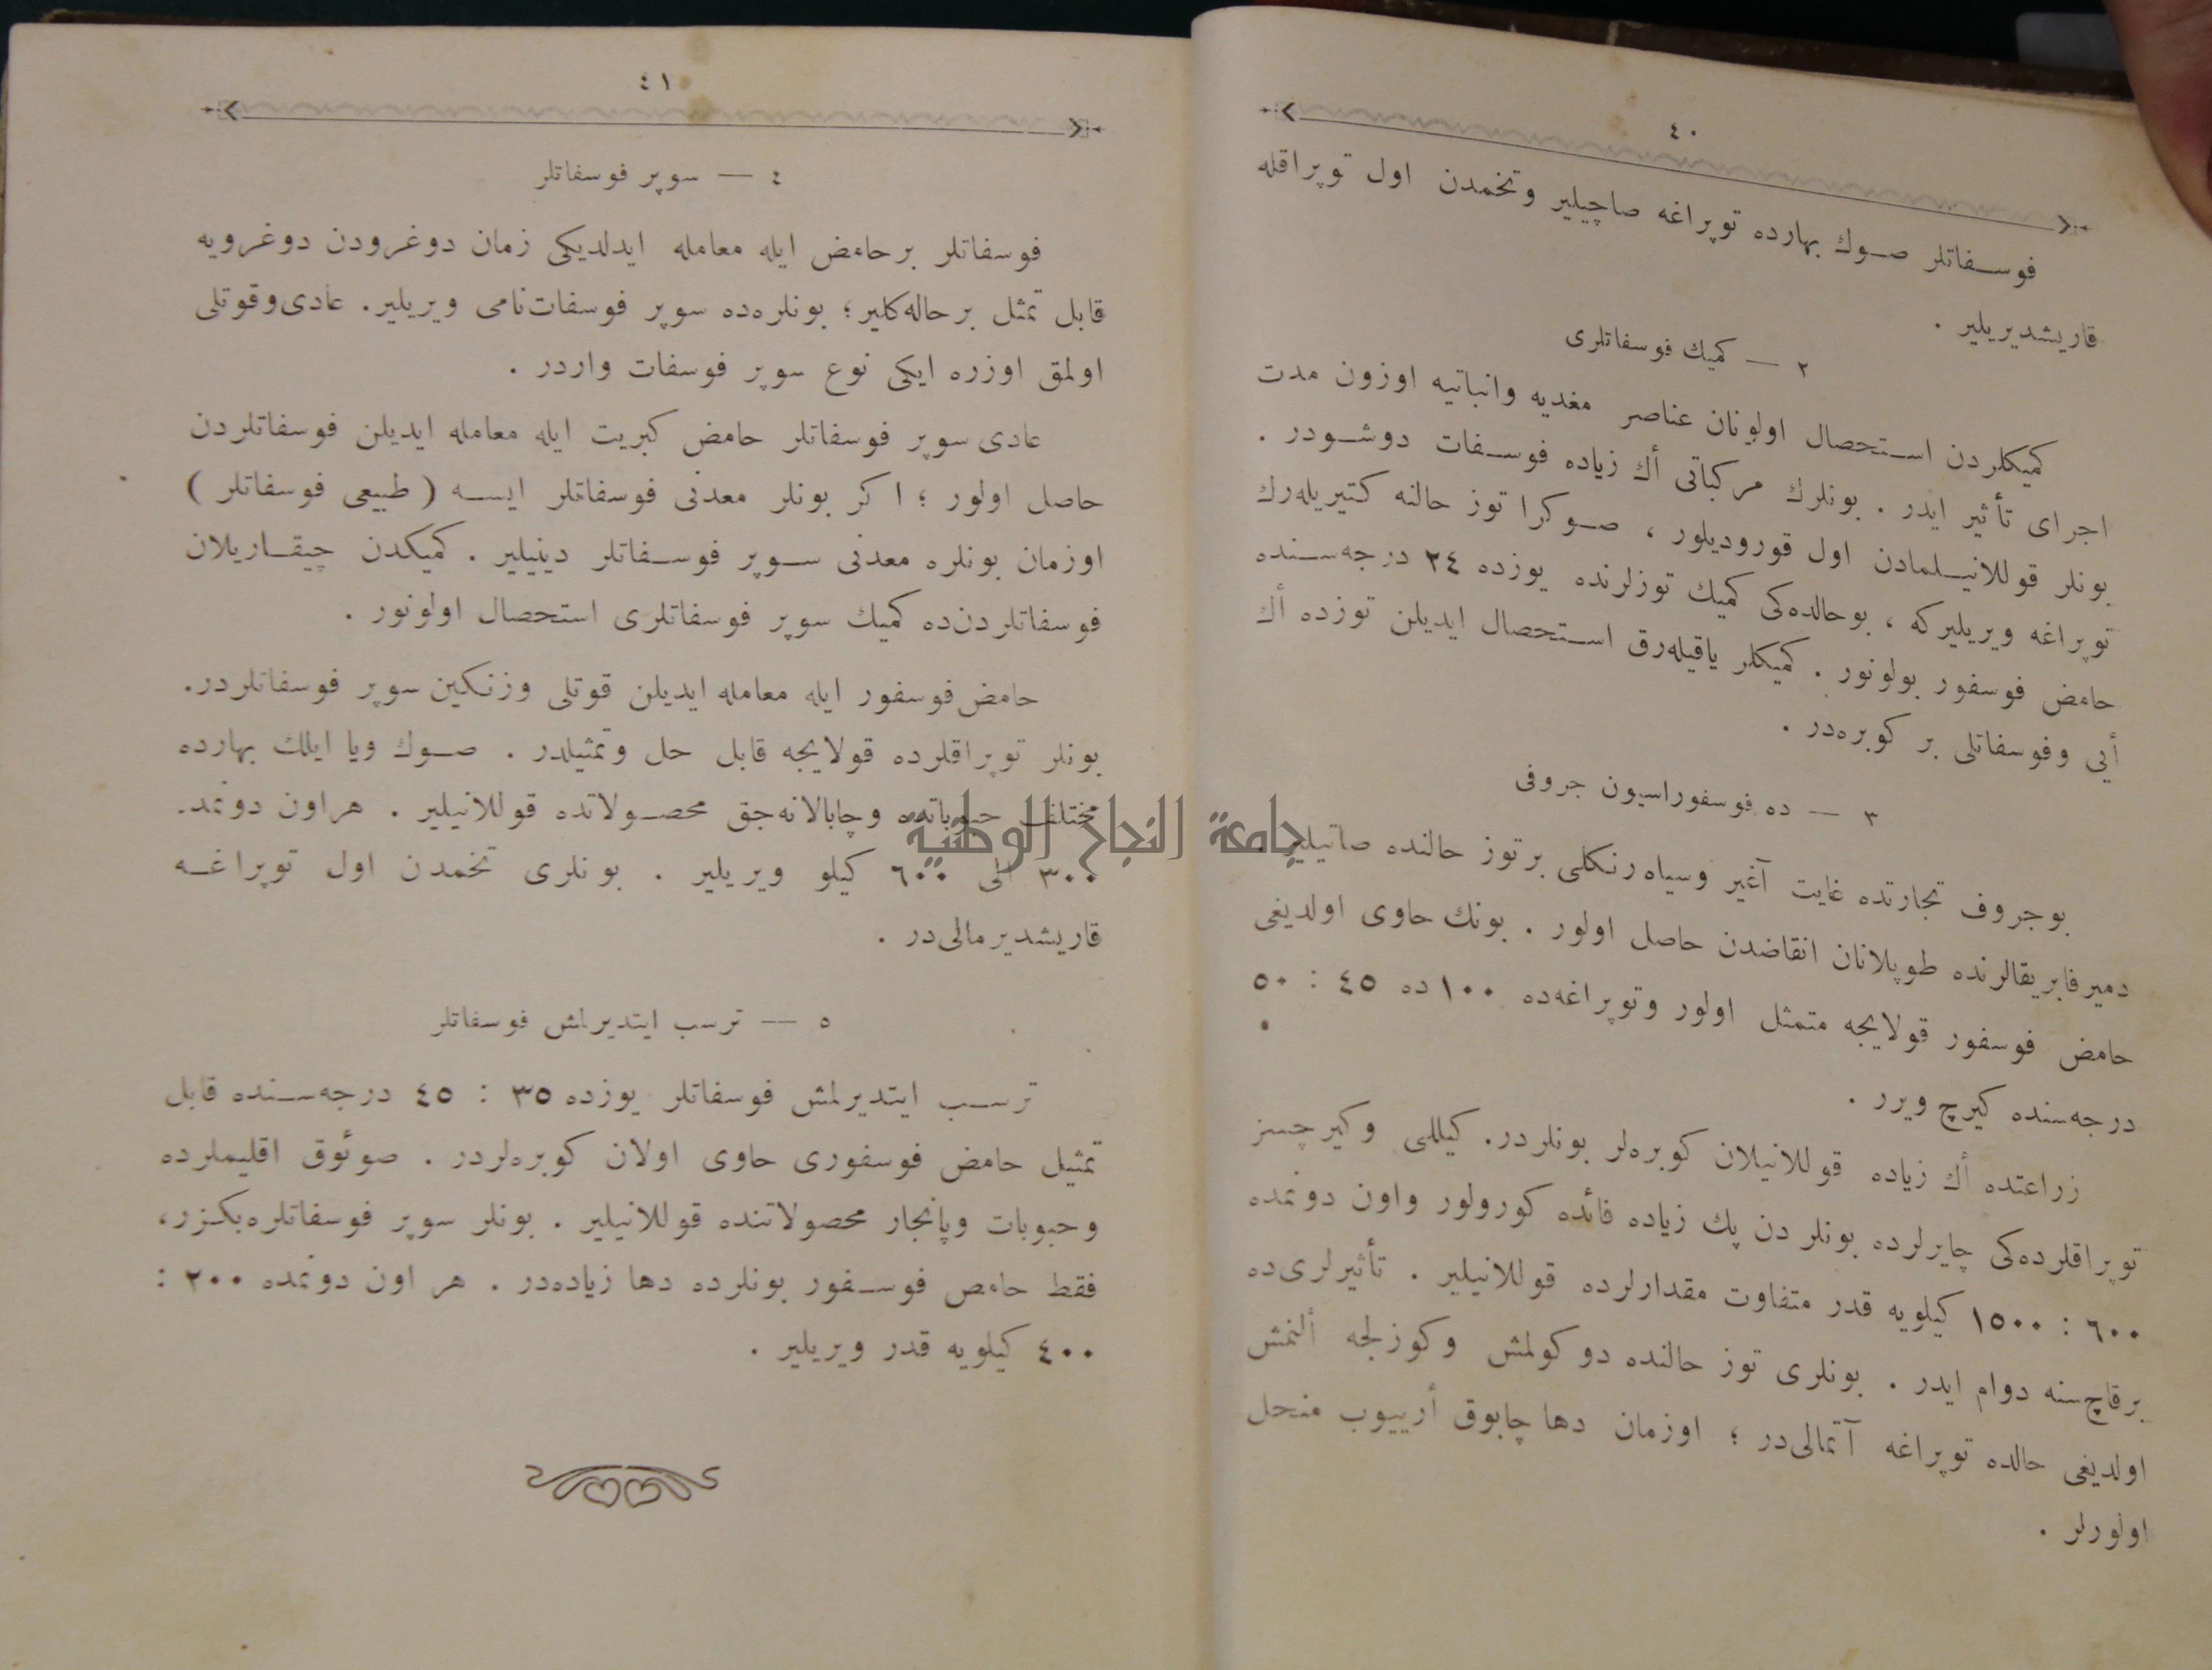 ٤٠
فوسفاتلر صوك بهارده توپراغه صاچيلير وتخمدن اول توپراقله
قاريشديريلير .
٢ — كميك فوسفاتلرى
كميكلردن استحصال اولونان عناصر مغديه وانباتيه اوزون مدت
اجراى تأثير ايدر . بونلرك مركباتى أك زياده فوسفات دوشودر .
بونلر قوللانيلمادن اول قوروديلور ، صوكرا توز حالنه كتيريله‌رك
توپراغه ويريليركه ، بوحالده‌كى كميك توزلرنده يوزده ٢٤ درجه‌سنده
حامض فوسفور بولونور . كميكلر ياقيله‌رق استحصال ايديلن توزده أك
أيى وفوسفاتلى بر كوبره‌در .
٣ — ده فوسفوراسيون جروفى
بوجروف تجارتده غايت آغير وسياه رنكلى برتوز حالنده صاتيلير .
دميرفابريقالرنده طوپلانان انقاضدن حاصل اولور . بونك حاوى اولديغى
حامض فوسفور قولايجه متمثل اولور وتوپراغه‌ده ١٠٠ده ٤٥ : ٥٠
درجه‌سنده كيرچ ويرر .
زراعتده أك زياده قوللانيلان كوبره‌لر بونلردر. كيللى وكيرچسز
توپراقلرده‌كى چايرلرده بونلر دن پك زياده فائده كورولور واون دونمده
٦٠٠ : ١٥٠٠ كيلويه قدر متفاوت مقدارلرده قوللانيلير . تأثيرلرى‌ده
برقاچ‌سنه دوام ايدر . بونلرى توز حالنده دوكولمش وكوزلجه ألنمش
اولديغى حالده توپراغه آتمالى‌در ؛ اوزمان دها چابوق أرييوب منحل
اولورلر .
٤١
٤ — سوپر فوسفاتلر
فوسفاتلر برحامض ايله معامله ايدلديكى زمان دوغرودن دوغرويه
قابل تمثل برحاله‌كلير ؛ بونلره‌ده سوپر فوسفات‌نامى ويريلير. عادى‌وقوتلى
اولمق اوزره ايكى نوع سوپر فوسفات واردر .
عادى سوپر فوسفاتلر حامض كبريت ايله معامله ايديلن فوسفاتلردن
حاصل اولور ؛ اكر بونلر معدنى فوسفاتلر ايسه ( طبيعى فوسفاتلر )
اوزمان بونلره معدنى سوپر فوسفاتلر دينيلير . كميكدن چيقاريلان
فوسفاتلردن‌ده كميك سوپر فوسفاتلرى استحصال اولونور .
حامض‌فوسفور ايله معامله ايديلن قوتلى وزنكين سوپر فوسفاتلردر.
بونلر توپراقلرده قولايجه قابل حل وتمثيلدر . صوك ويا ايلك بهارده
مختلف حبوباتده وچاپالانه‌جق محصولاتده قوللانيلير . هراون دونمد-
٣٠٠ الى ٦٠٠ كيلو ويريلير . بونلرى تخمدن اول توپراغه
قاريشديرمالى‌در .
جامعة النجاح الوطنية
٥ — ترسب ايتديرلمش فوسفاتلر
ترسب ايتديرلمش فوسفاتلر يوزده ٣٥ : ٤٥ درجه‌سنده قابل
تمثيل حامض فوسفورى حاوى اولان كوبره‌لردر . صوئوق اقليملرده
وحبوبات وپانجار محصولاتنده قوللانيلير . بونلر سوپر فوسفاتلره‌بكزر،
فقط حامص فوسفور بونلرده دها زياده‌در . هر اون دونمده ٢٠٠ :
٤٠٠ كيلويه قدر ويريلير .